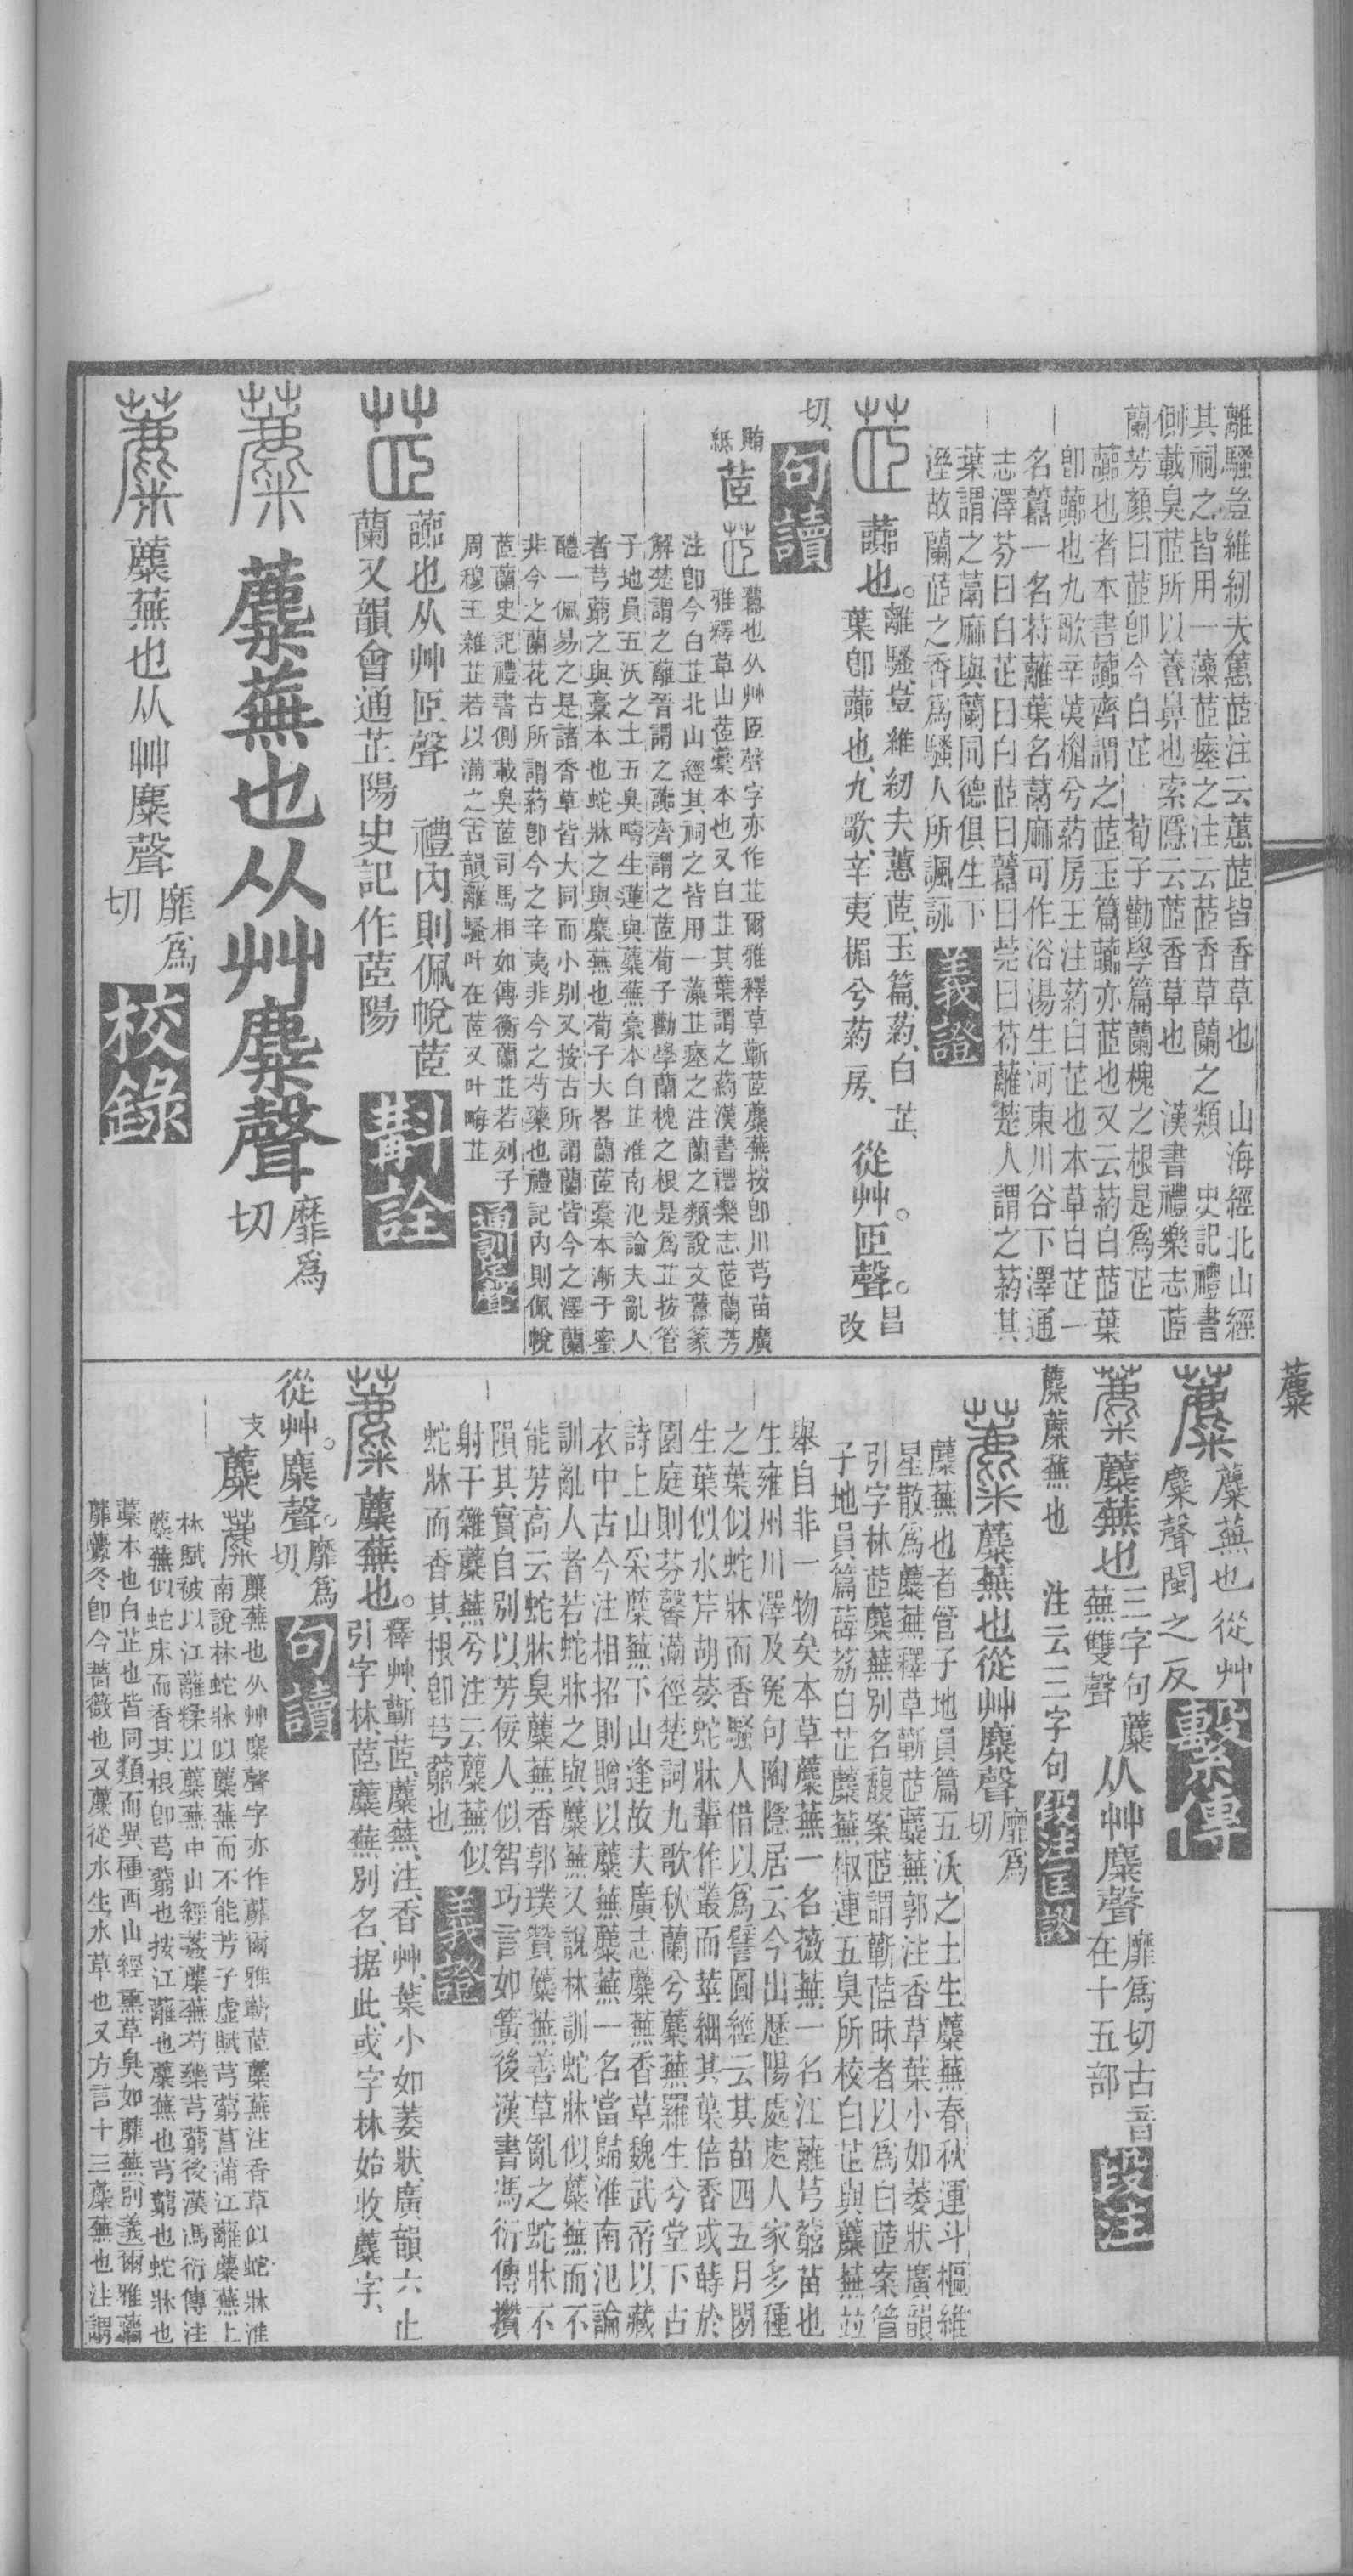 離騷豈維紉夫蕙茝注云蕙茝皆香草也　山海經北山經
其祠之皆用一藻茝瘞之注云茝香草蘭之類　史記禮書
側載臭茝所以養鼻也索隱云茝香草也　漢書禮樂志茝
蘭芳顏曰茝卽今白芷　荀子勸學篇蘭槐之根是爲芷
虈也者本書虈齊謂之茝玉篇虈亦茝也又云葯白茝葉
卽虈也九歌辛夷楣兮葯房王注葯白芷也本草白芷一
名虈一名苻蘺葉名蒚麻可作浴湯生河東川谷下澤通
志澤芬曰白芷曰白茝曰虈曰莞曰苻蘺楚人謂之葯其
葉謂之蒚麻與蘭同德俱生下
溼故蘭茝之香爲騷人所諷詠
義證
茝
虈也。
離騷、豈維紉夫蕙茝、玉篇、葯、白芷、
葉卽虈也、九歌、辛夷楣兮葯房、
從艸。𦣞聲。
昌
改
切、
句讀
賄
紙
茝
茝
虈也从艸𦣞聲字亦作芷爾雅釋草蘄茝蘪蕪按卽川芎苗廣
雅釋草山茝槀本也又白芷其葉謂之葯漢書禮樂志茝蘭芳
注卽今白芷北山經其祠之皆用一藻茝瘞之注蘭之類說文虈篆
解楚謂之蘺晉謂之虈齊謂之茝荀子勸學蘭槐之根是爲芷按管
子地員五沃之土五臭疇生蓮與蘪蕪槀本白芷淮南氾論夫亂人
者芎藭之與槀本也蛇牀之與蘪蕪也荀子大畧蘭茝槀本漸于蜜
醴一佩易之是諸香草皆大同而小別又按古所謂蘭皆今之澤蘭
非今之蘭花古所謂葯卽今之辛夷非今之芍藥也禮記內則佩帨
茝蘭史記禮書側載臭茝司馬相如傳衡蘭芷若列子
周穆王雜芷若以滿之古韻離騷叶在茝又叶晦芷
通訓定聲
茝
虈也从艸𦣞聲　禮內則佩帨茝
蘭又韻會通芷陽史記作茝陽
斠詮
蘪
蘪蕪也从艸麋聲
靡爲
切
蘪
蘪蕪也从艸麋聲
靡爲
切
校錄
蘪
蘪
蘪蕪也從艸
麋聲閩之反
繫傳
蘪
蘪蕪也
三字句蘪
蕪雙聲
从艸麋聲
靡爲切古音
在十五部
段注
蘪蘪蕪也　注云三字句
段注匡謬
蘪
蘪蕪也從艸麋聲
靡爲
切
蘪蕪也者管子地員篇五沃之土生蘪蕪春秋運斗樞維
星散爲蘪蕪釋草蘄茝蘪蕪郭注香草葉小如萎狀廣韻
引字林茝蘪蕪別名馥案茝謂蘄茝昧者以爲白茝案管
子地員篇薜荔白芷蘪蕪椒連五臭所校白芷與蘪蕪竝
舉自非一物矣本草蘪蕪一名薇蕪一名江蘺芎藭苗也
生雍州川澤及冤句陶隱居云今出歷陽處處人家多種
之葉似蛇牀而香騷人借以爲譬圖經云其苗四五月閒
生葉似水芹胡荽蛇牀輩作叢而莖細其葉倍香或蒔於
園庭則芬馨滿徑楚詞九歌秋蘭兮蘪蕪羅生兮堂下古
詩上山采蘪蕪下山逢故夫廣志蘪蕪香草魏武帝以藏
衣中古今注相招則贈以蘪蕪蘪蕪一名當歸淮南氾論
訓亂人者若蛇牀之與蘪蕪又說林訓蛇牀似蘪蕪而不
能芳高云蛇牀臭蘪蕪香郭璞贊蘪蕪善草亂之蛇牀不
隕其實自別以芳佞人似智巧言如簧後漢書馮衍傳攢
射干雜蘪蕪兮注云蘪蕪似
蛇牀而香其根卽芎藭也
義證
蘪
蘪蕪也。
釋艸、蘄茝、蘪蕪、注、香艸、葉小如萎狀、廣韻六止
引字林、茝蘪蕪別名、据此、或字林始收蘪字、
從艸。麋聲。
靡爲
切、
句讀
支
蘪
蘪
蘪蕪也从艸麋聲字亦作蘼爾雅蘄茝蘪蕪注香草似蛇牀淮
南說林蛇牀似蘪蕪而不能芳子虛賦芎藭菖蒲江蘺蘪蕪上
林賦被以江蘺糅以蘪蕪中山經蘪蕪芍藥芎藭後漢馮衍傳注
蘪蕪似蛇床而香其根卽芎藭也按江蘺也蘪蕪也芎藭也蛇牀也
槀本也白芷也皆同類而異種西山經熏草臭如蘼蕪別義爾雅蘠
蘼虋冬卽今薔薇也又蘪從水生水草也又方言十三蘪蕪也注謂